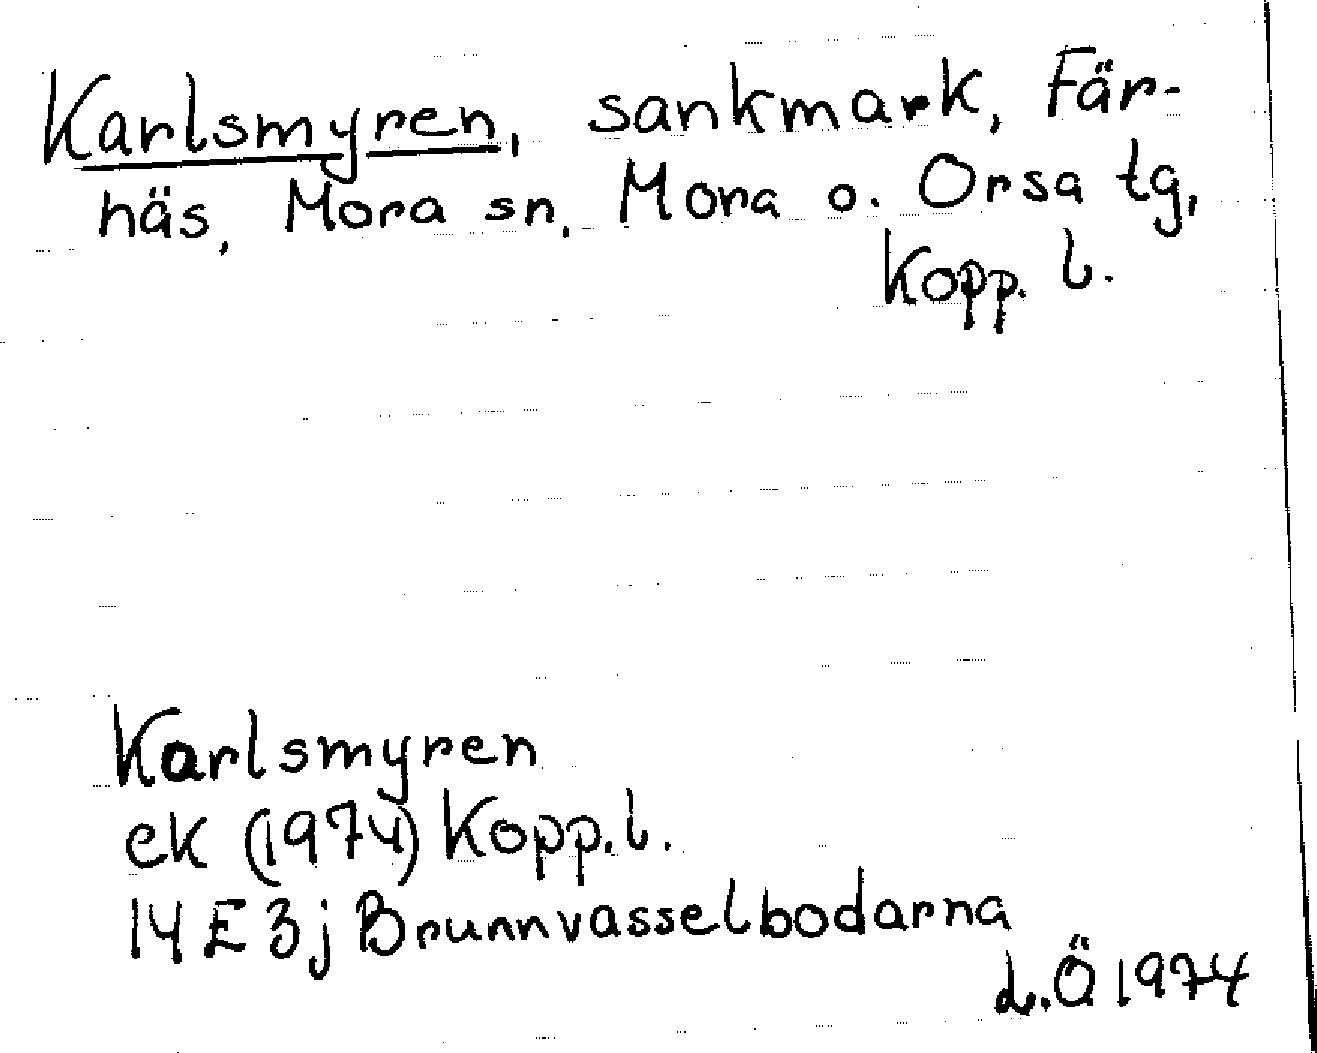 Karlsmyren, sankmark, Fär-
näs, Mora sn, Mora o. Orsa tg,
Kopp. l.
Karlsmyren
ek (1974) Kopp.l.
14 E 3j Brunnvasselbodarna
L.Ö 1974